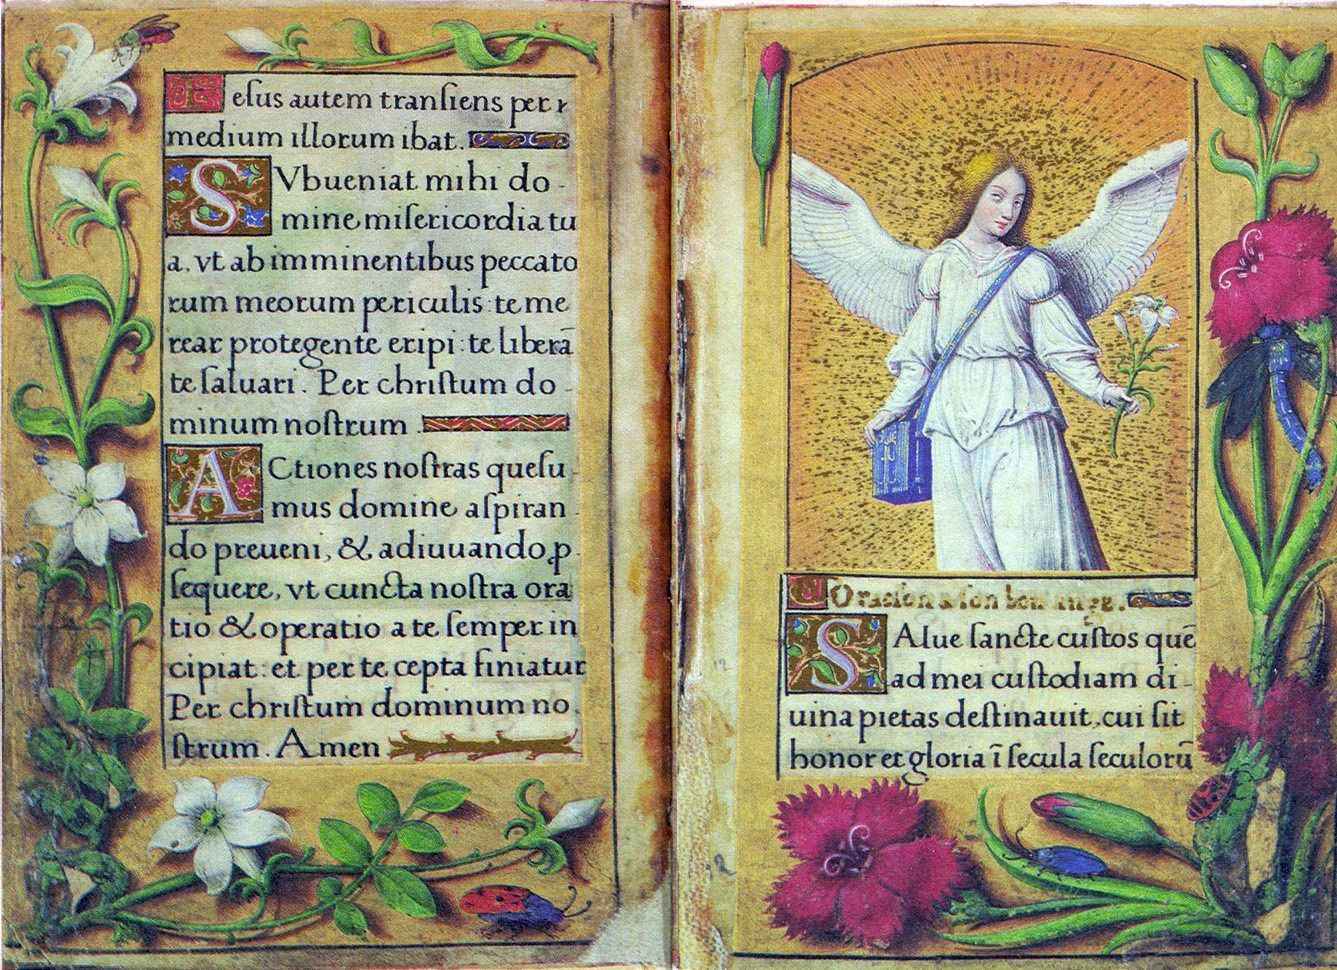 Iesus autem tranſiens per r
medium illorum ibat.
SVbueniat mihi do-
mine miſericordia tu
a, vt ab imminentibus peccato
rum meorum periculis te me
rear protegente eripi: te liberā
te ſaluari. Per chriſtum do-
minum noſtrum
ACtiones noſtras queſu-
mus domine aſpiran-
do preueni, & adiuuando ꝓ-
ſequere, vt cuncta noſtra ora
tio & operatio a te ſemper in
cipiat: et per te cepta finiatur
Per chriſtum dominum no-
ſtrum. Amen
Oraeſon a ſon bon
SAlue ſancte cuſtos quē
ad mei cuſtodiam di-
uina pietas deſtinauit. cui ſit
honor et gloria ī ſecula ſeculorū